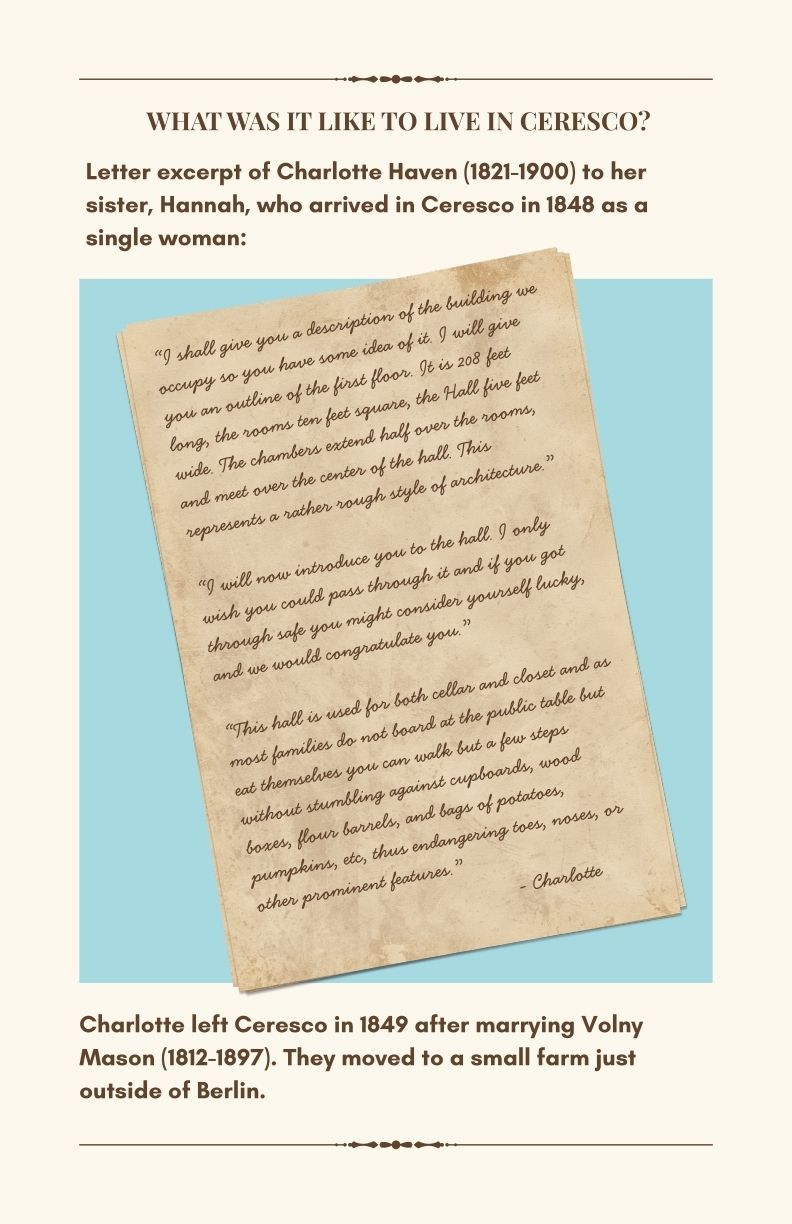 WHAT WAS IT LIKE TO LIVE IN CERESCO?
Letter excerpt of Charlotte Haven (1821-1900) to her
sister, Hannah, who arrived in Ceresco in 1848 as a
single woman:
“I shall give you a description of the building we
occupy so you have some idea of it. I will give
you an outline of the first floor. It is 208 feet
long, the rooms ten feet square, the Hall five feet
wide. The chambers extend half over the rooms,
and meet over the center of the hall. This
represents a rather rough style of architecture.”
“I will now introduce you to the hall. I only
wish you could pass through it and if you got
through safe you might consider yourself lucky,
and we would congratulate you.”
“This hall is used for both cellar and closet and as
most families do not board at the public table but
eat themselves you can walk but a few steps
without stumbling against cupboards, wood
boxes, flour barrels, and bags of potatoes,
pumpkins, etc, thus endangering toes, noses, or
other prominent features.”
- Charlotte
Charlotte left Ceresco in 1849 after marrying Volny
Mason (1812-1897). They moved to a small farm just
outside of Berlin.